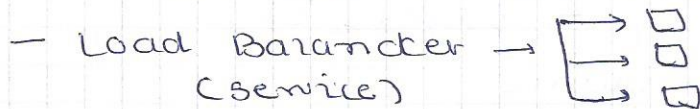 - Load Balancker →
(service)